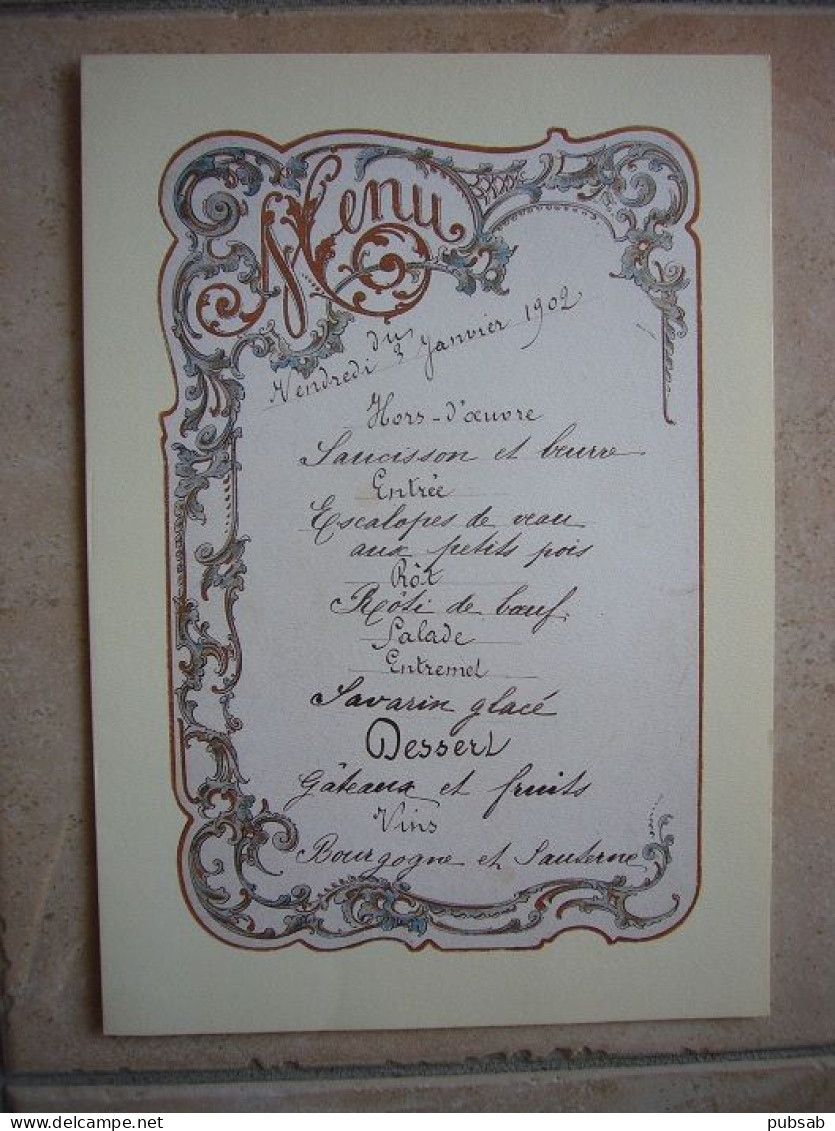 Menu
du
Vendredi 3 Janvier 1902
Hors-d'œuvre
Saucisson et beurre
Entrée
Escalopes de veau
aux petits pois
Rôt
Rôti de bœuf.
Salade
Entremet
Savarin glacé
Dessert
Gâteaux et fruits
Vins
Bourgogne et Sauterne
pubsab